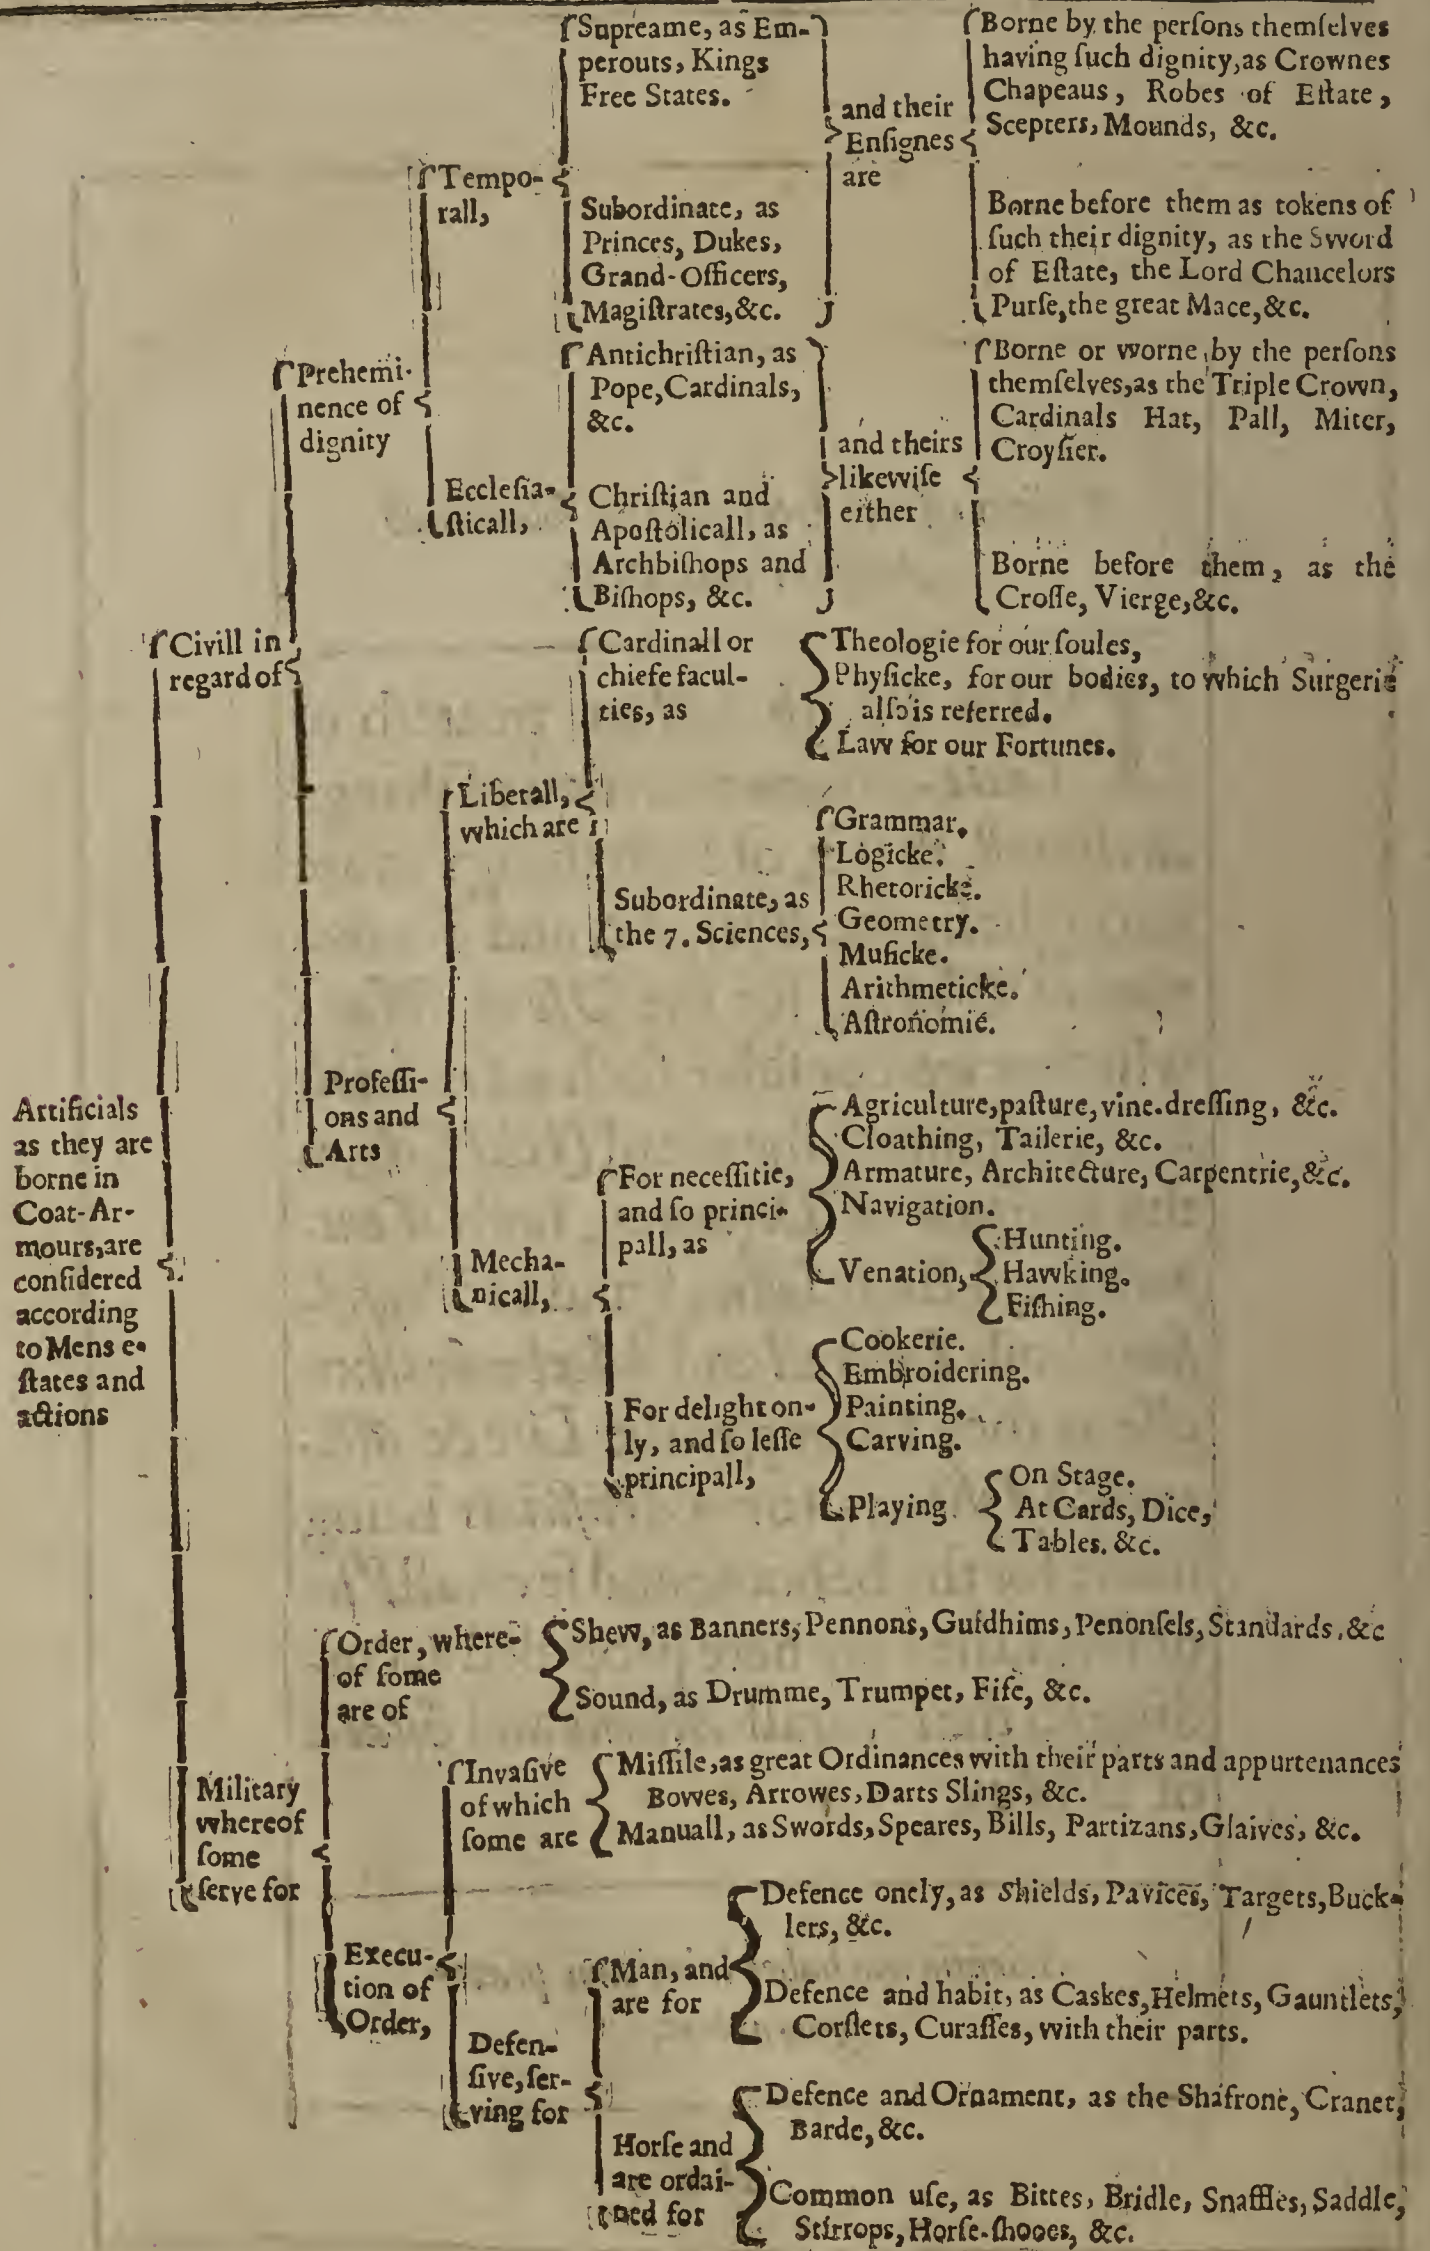 Artificials
as they are
borne in
Coat-Ar-
mours, are
conſidered
according
to Mens e-
ſtates and
actions
Civill in
regard of
Prehemi-
nence of
dignity
Tempo-
rall,
Supreame, as Em-
perouts, Kings
Free States.
Subordinate, as
Princes, Dukes,
Grand-Officers,
Magiſtrates, &c.
and their
Enſignes
are
Borne by the perſons themſelves
having ſuch dignity, as Crownes
Chapeaus, Robes of Eſtate,
Scepters, Mounds, &c.
Borne before them as tokens of
ſuch their dignity, as the Sword
of Eſtate, the Lord Chancelors
Purſe, the great Mace, &c.
Eccleſia-
ſticall,
Antichriſtian, as
Pope, Cardinals,
&c.
Chriſtian and
Apoſtolicall, as
Archbiſhops and
Biſhops, &c.
and theirs
likewiſe
either
Borne or worne by the perſons
themſelves, as the Triple Crown,
Cardinals Hat, Pall, Miter,
Croyſier.
Borne before them, as the
Croſſe, Vierge, &c.
Profeſſi-
ons and
Arts
Liberall,
which are
Cardinall or
chiefe facul-
ties, as
Theologie for our ſoules,
Phyſicke, for our bodies, to which Surgerie
alſo is referred.
Law for our Fortunes.
Subordinate, as
the 7. Sciences,
Grammar.
Logicke.
Rhetoricke.
Geometry.
Muſicke.
Arithmeticke.
Aſtronomie.
Mecha-
nicall,
For neceſſitie,
and ſo princi-
pall, as
Agriculture, paſture, vine-dreſſing, &c.
Cloathing, Tailerie, &c.
Armature, Architecture, Carpentrie, &c.
Navigation.
Venation,
Hunting.
Hawking.
Fiſhing.
For delight on-
ly, and ſo leſſe
principall,
Cookerie.
Embroidering.
Painting.
Carving.
Playing
On Stage.
At Cards, Dice,
Tables. &c.
Military
whereof
ſome
ſerve for
Order, where-
of ſome
are of
Shew, as Banners, Pennons, Guidhims, Penonſels, Standards, &c
Sound, as Drumme, Trumpet, Fife, &c.
Execu-
tion of
Order,
Invaſive
of which
ſome are
Miſſile, as great Ordinances with their parts and appurtenances
Bowes, Arrowes, Darts Slings, &c.
Manuall, as Swords, Speares, Bills, Partizans, Glaives, &c.
Defen-
ſive, ſer-
ving for
Man, and
are for
Defence onely, as Shields, Pavices, Targets, Buck-
lers, &c.
Defence and habit, as Caskes, Helmets, Gauntlets,
Corſlets, Curaſſes, with their parts.
Horſe and
are ordai-
ned for
Defence and Ornament, as the Shafrone, Cranet,
Barde, &c.
Common uſe, as Bittes, Bridle, Snaffles, Saddle,
Stirrops, Horſe-ſhooes, &c.